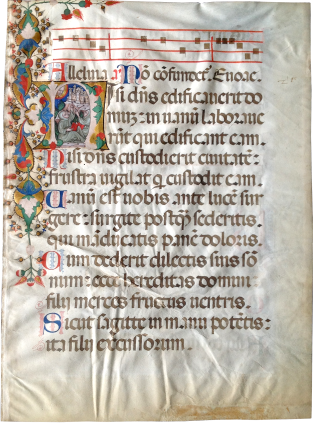 Alleluia a. Nō cōfundet᷑. Euouae.
Nisi dn̄s edificauerit do
mum: in uanū laborauē
runt qui edificant eam.
Nisi dn̄s custodierit ciuitatē:
frustra uigilat q̄ custodit eam.
Uanū est uobis ante lucē sur
gere: surgite postq̄ sederitis,
qui māducatis panē doloris.
Cum dederit dilectis suis sō
num: ecce hereditas domini
filij merces fructus uentris.
Sicut sagitte in manu potētis:
ita filij excussorum.